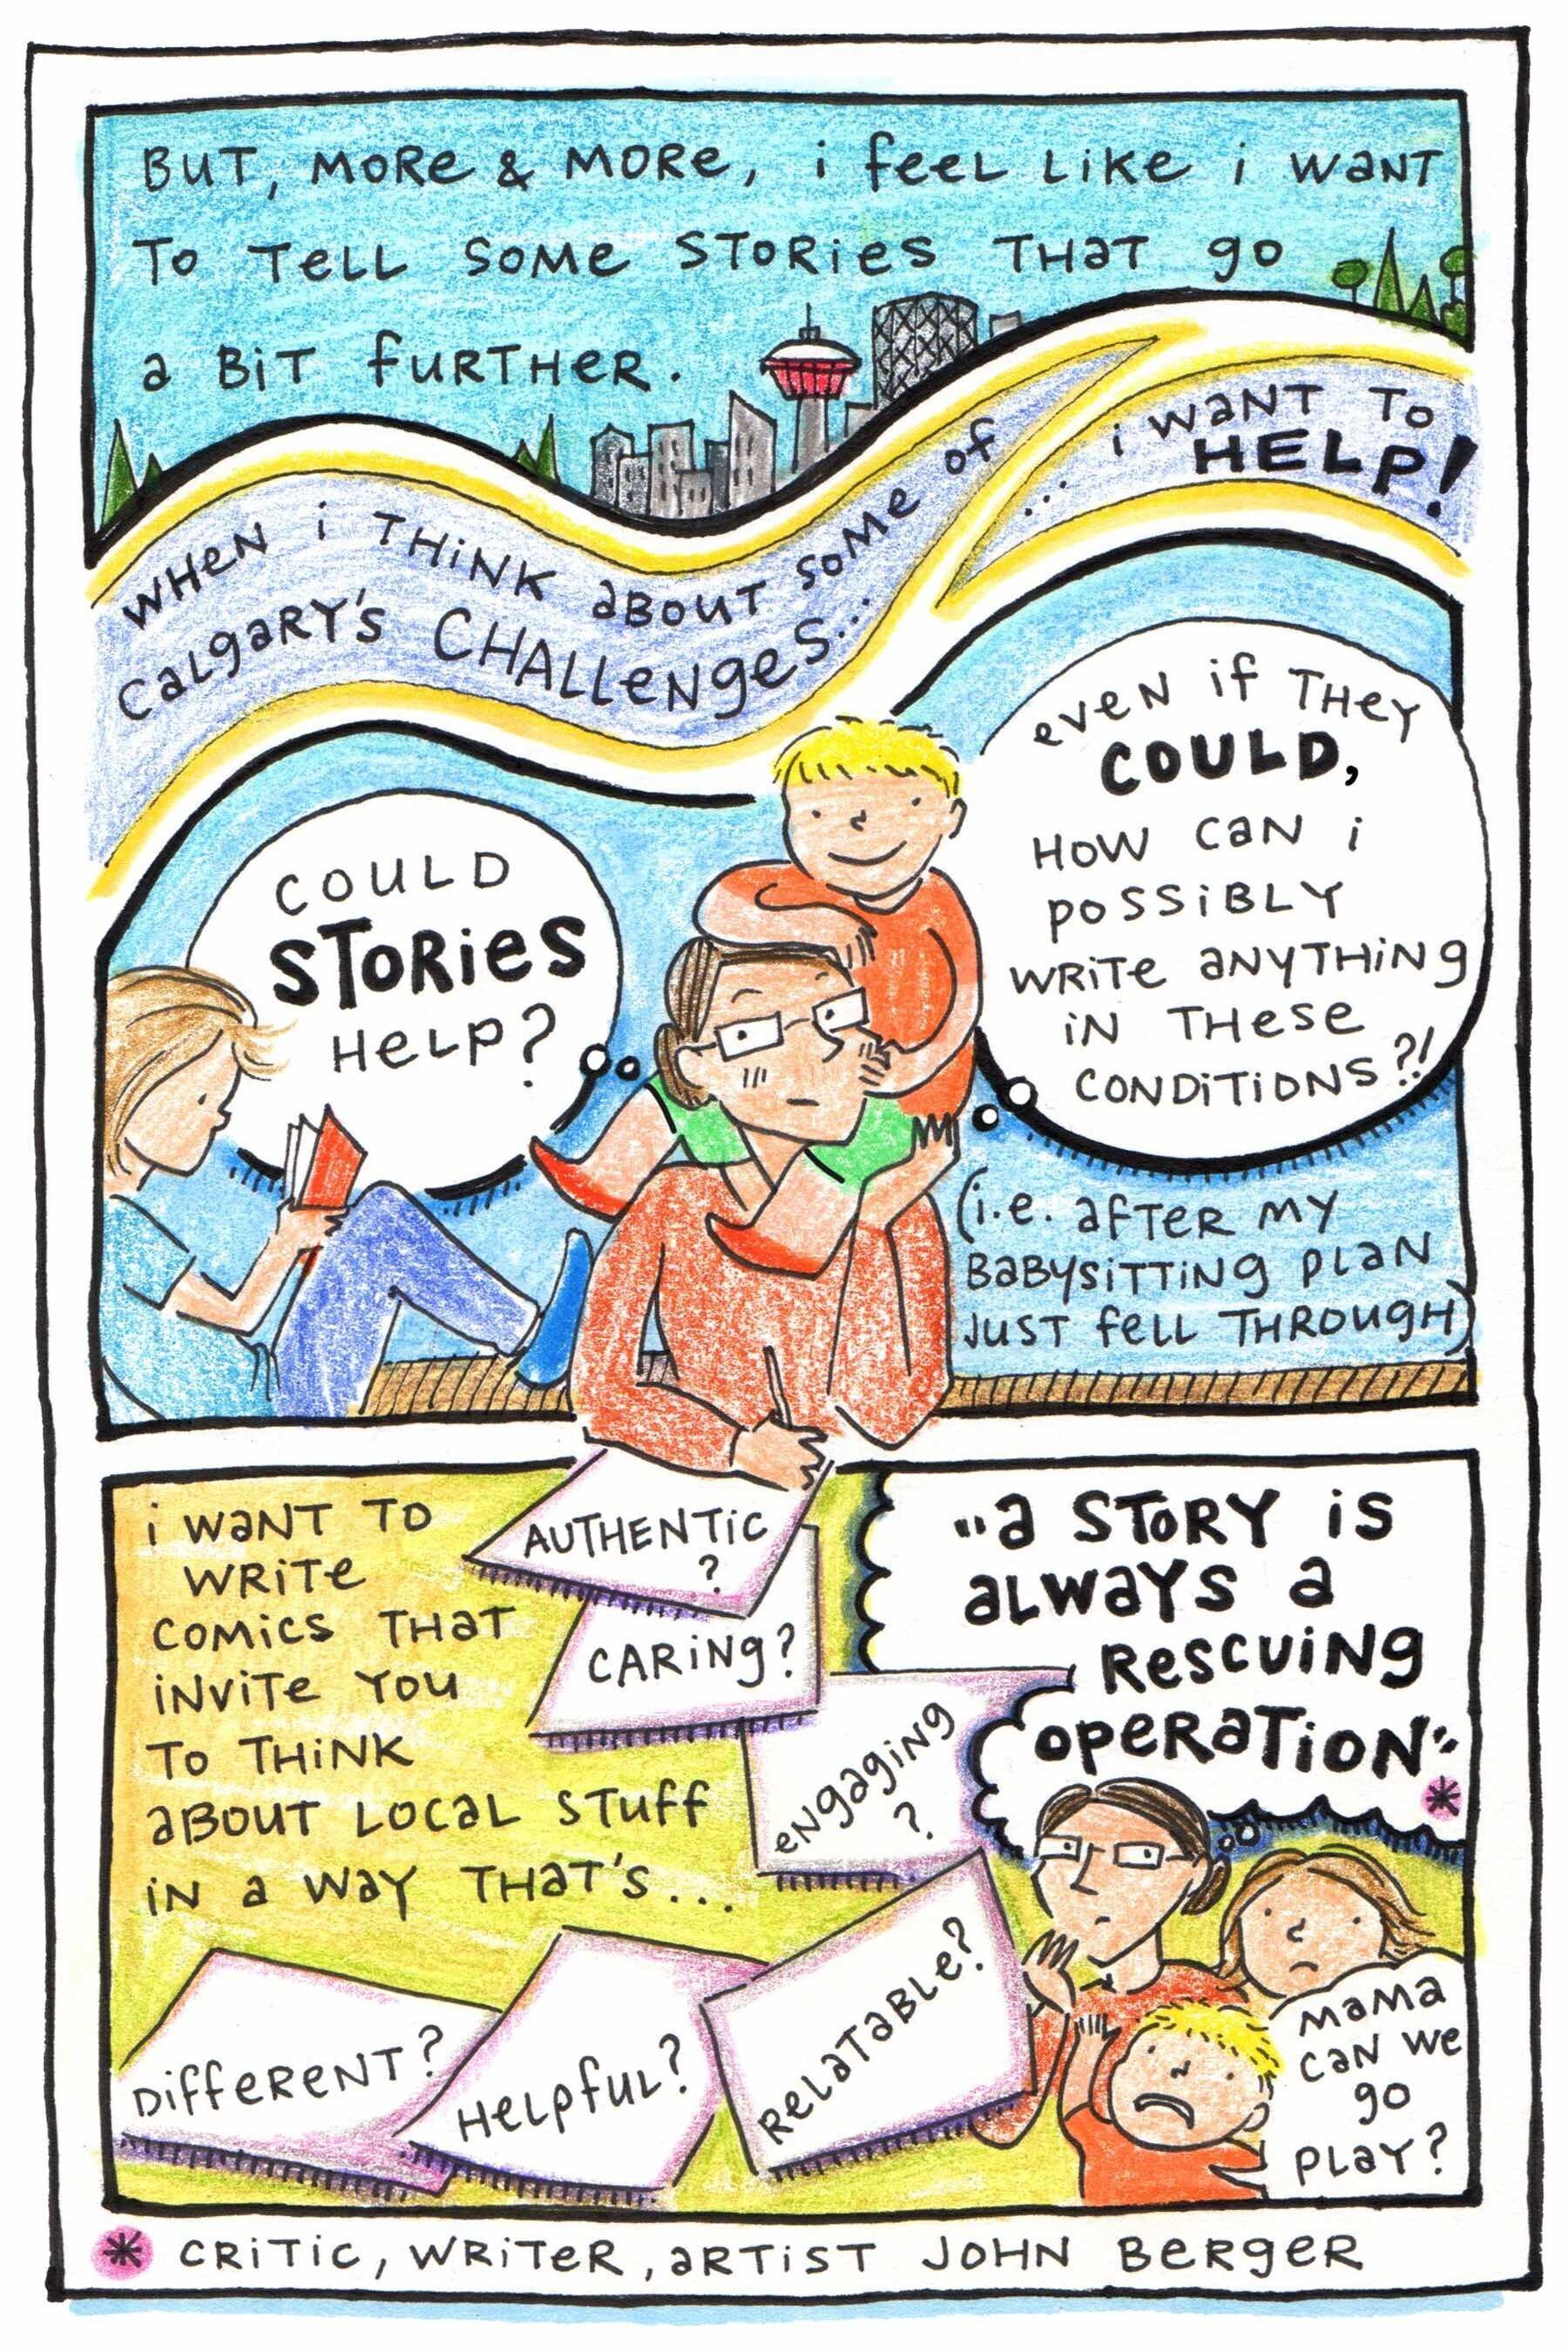 BUT, MORe & MORe, i feeL LiKe i WaNT
To TeLL SOMe SToRies THaT go
a BiT fURTHeR.
WHeN i THiNK aBOUT SoMe of
CaLgaRY's CHALLeNgeS...
... i WaNT To
HELP!
COULD
SToRies
HeLP?
eveN if THey
COULD,
HOW CaN i
poSSiBLY
WRiTe aNYTHiNg
iN THese
CONDiTiONS?!
(i.e. afTeR MY
BaBYSiTTiNg PLaN
JUST feLL THROUgH)
i WaNT TO
WRiTe
COMiCS THaT
iNViTe YOU
TO THiNK
aBOUT LOCaL STUff
iN a WaY THaT'S...
AUTHENTiC
?
CARiNg?
eNgagiNg
?
ReLaTaBLe?
HeLpfUL?
DiffeReNT?
"a SToRY iS
aLWaYS a
ReSCUiNg
OPeRaTiON"*
MaMa
CaN We
gO
PLaY?
* CRiTiC, WRiTeR, aRTiST JOHN BeRgeR